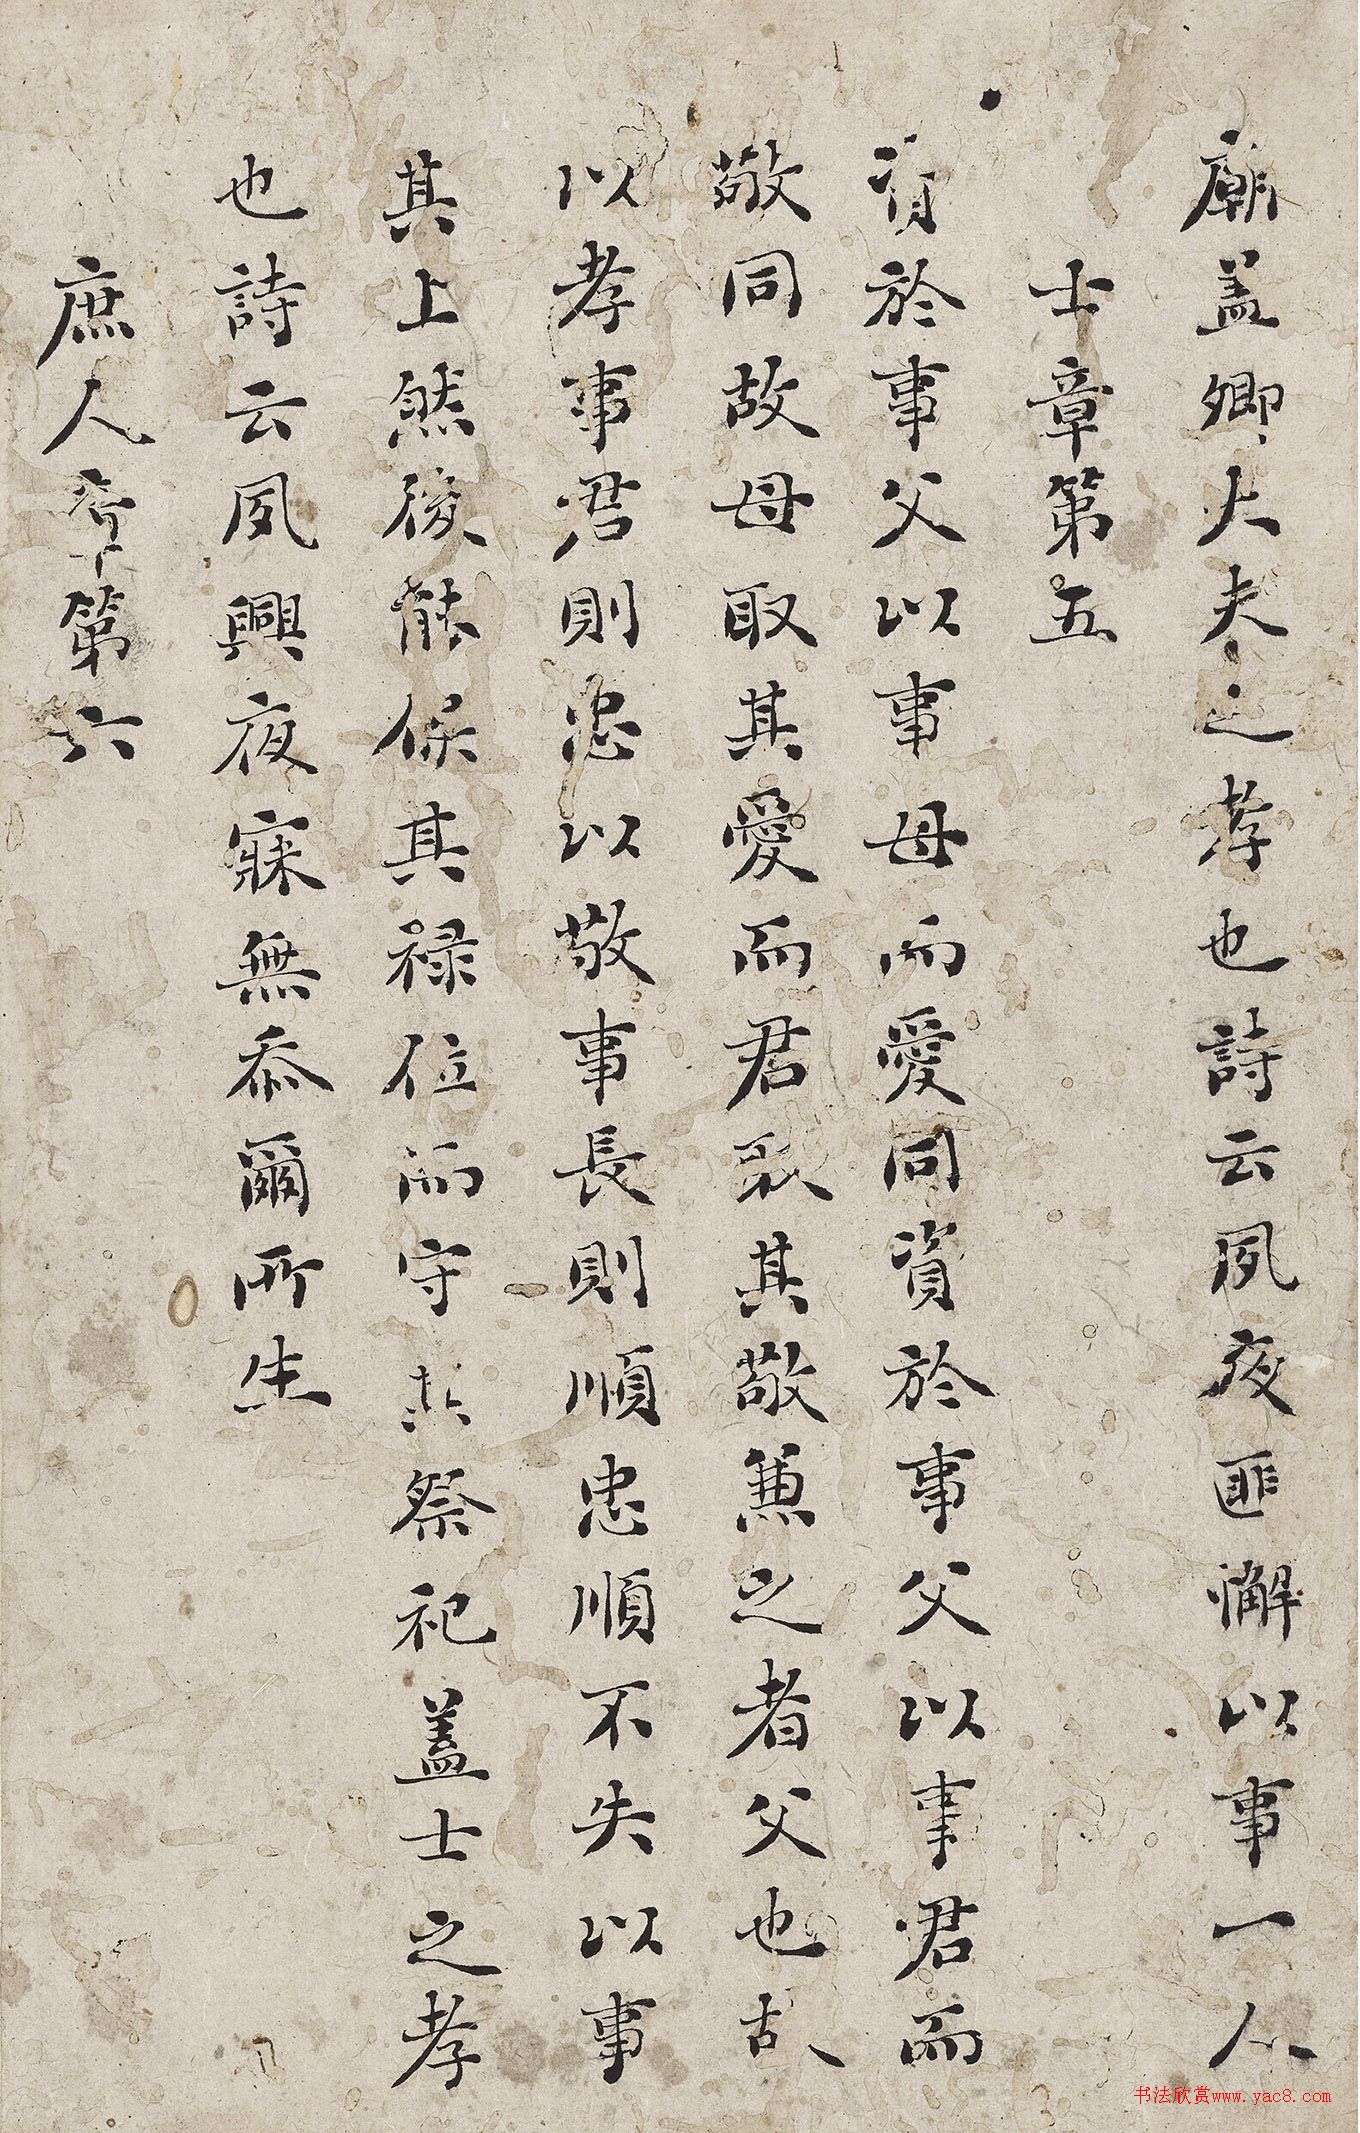 廟盖卿大夫之孝也詩云夙夜匪懈以事一人
士章第五
資於事父以事母而愛同資於事父以事君而
敬同故母取其愛而君取其敬兼之者父也故
以孝事君則忠以敬事長則順忠順不失以事
其上然後能保其禄位而守其祭祀盖士之孝
也詩云夙興夜寐無忝爾所生
庶人章第六
书法欣赏www.yac8.com